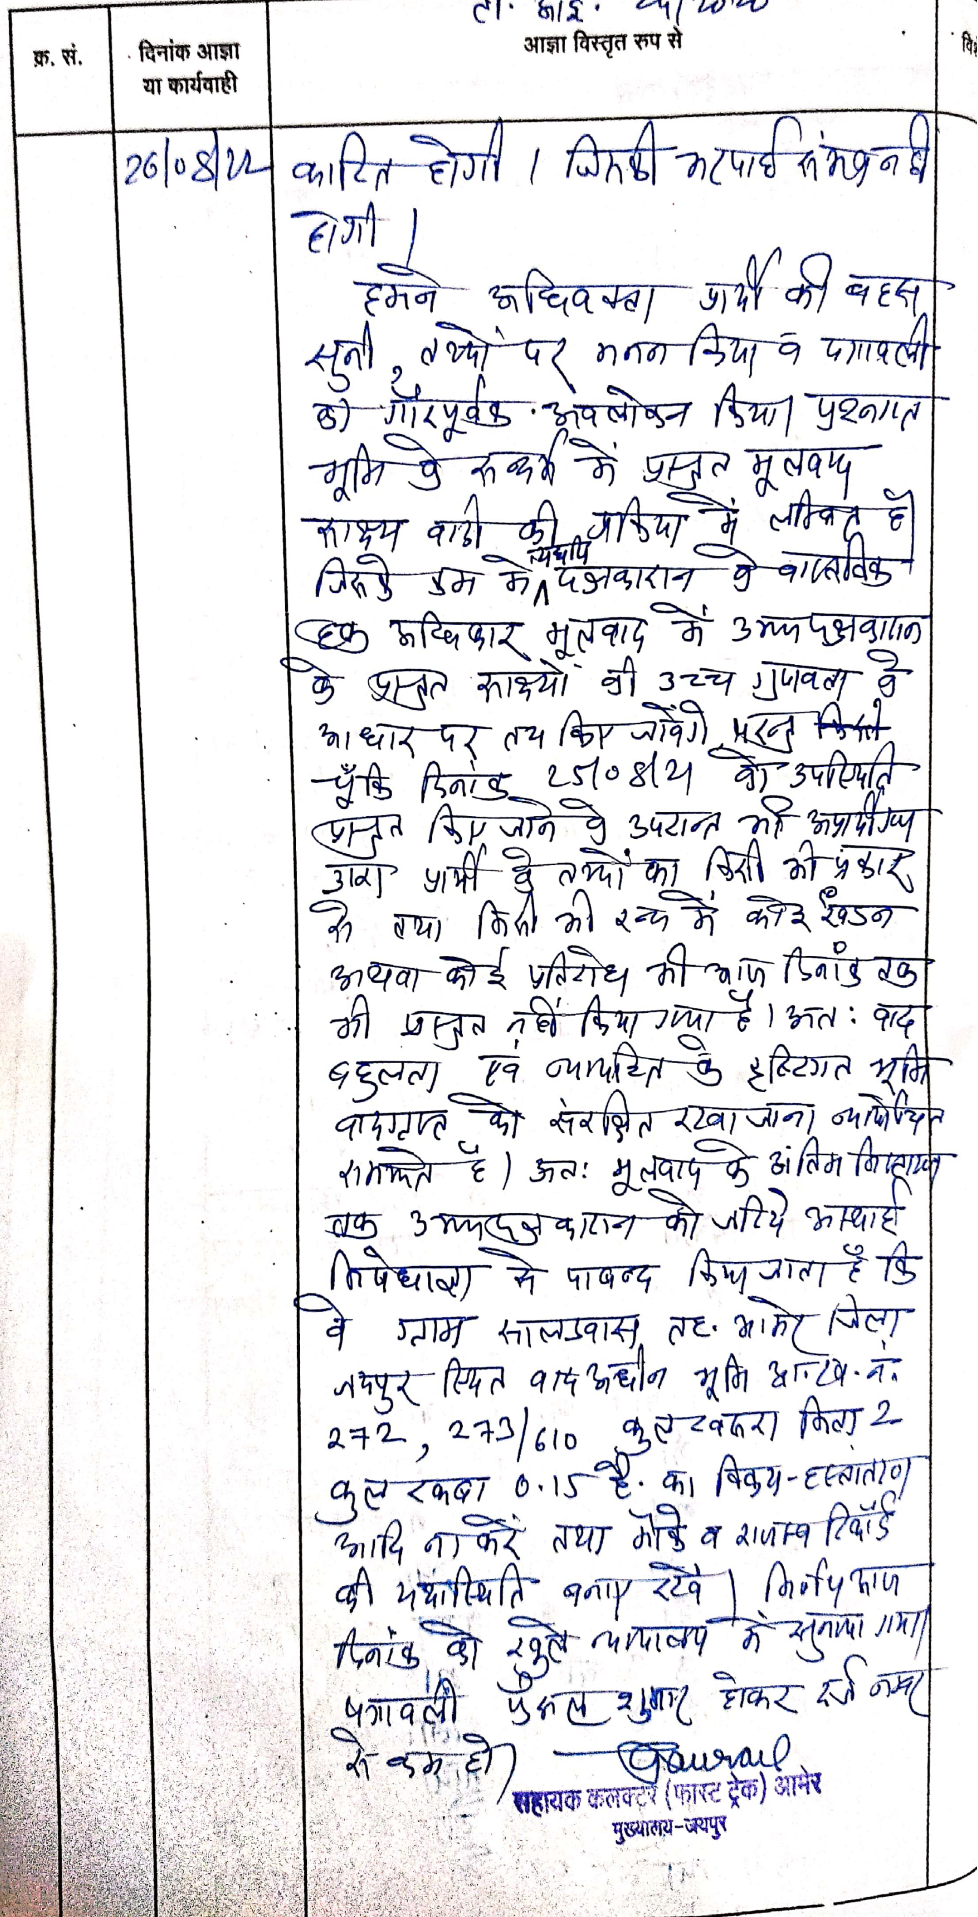 टी. आई.
क्र. सं.
दिनांक आज्ञा
या कार्यवाही
आज्ञा विस्तृत रुप से
26/08/22
कारित होगी । जिसकी भरपाई संभव नहीं
होगी ।
हमने अधिवक्ता प्रार्थी की बहस
सुनी, तथ्यों पर मनन किया व पत्रावली
का गौरपूर्वक अवलोकन किया। प्रश्नगत
भूमि के सन्दर्भ में प्रस्तुत मूलवाद
साक्ष्य वादी की प्रक्रिया में लम्बित है
जिसके क्रम में यद्यपि पक्षकारान के वास्तविक
हक अधिकार मूलवाद में उभयपक्षकारान
के प्रस्तुत साक्ष्यों की उच्च गुणवत्ता के
आधार पर तय किए जावेंगे परन्तु
चूँकि दिनांक 25/08/21 को उपस्थिति
प्रस्तुत किए जाने के उपरान्त भी अप्रार्थीगण
द्वारा प्रार्थी के तथ्यों का किसी भी प्रकार
से तथा किसी भी रूप में कोई खंडन
अथवा कोई प्रतिरोध भी आज दिनांक तक
भी प्रस्तुत नहीं किया गया है। अत: वाद
बहुलता एवं न्यायहित के दृष्टिगत भूमि
वादग्रस्त को संरक्षित रखा जाना न्यायोचित
समझते है। अत: मूलवाद के अंतिम निस्तारण
तक उभयपक्षकारान को जरिये अस्थाई
निषेधाज्ञा से पाबन्द किया जाता है कि
वे ग्राम सालडवास, तह. आमेर जिला
जयपुर स्थित वाद अधीन भूमि ख. नं.
272, 273/610 कुल खसरा किता 2
कुल रकबा 0.15 है. का विक्रय-हस्तांतरण
आदि ना करें तथा मौके व राजस्व रिकॉर्ड
की यथास्थिति बनाए रखें। निर्णय आज
दिनांक को खुले न्यायालय में सुनाया गया।
पत्रावली फैसल शुमार होकर दर्ज नम्बर
से कम हो।
सहायक कलक्टर (फास्ट ट्रेक) आमेर
मुख्यालय-जयपुर